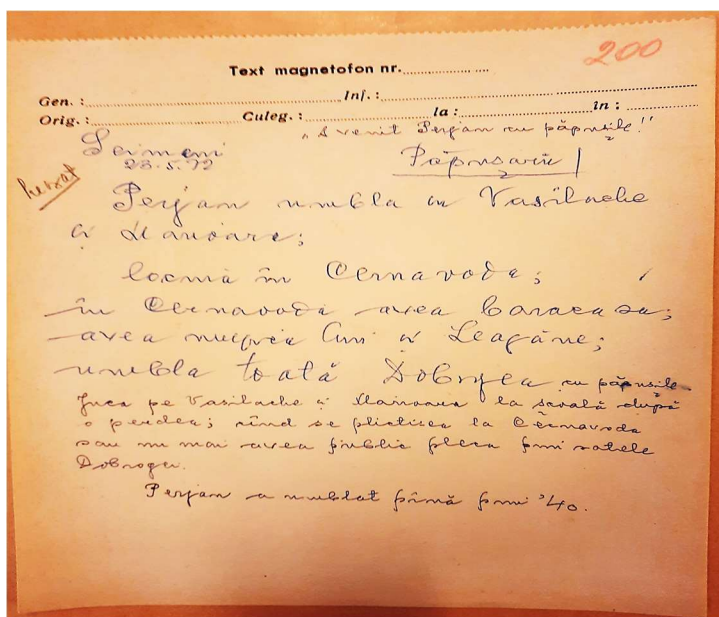 200
Text magnetofon nr. ..................
Gen. : .................. Inf. : ..................
Orig. : .................. Culeg. : .................. la : .................. în : ..................
„A venit Perjan cu păpușile!"
Seimeni Păpușariu
23.5.72
Perjan umbla cu Vasilache
și Marioare;
locuia în Cernavoda;
în Cernavoda avea baraca sa;
avea și Leagăne;
umbla toată Dobrogea cu păpușile
Juca pe Vasilache și Marioara la după
o perdea; cînd se plictisea la Cernavoda
sau nu mai avea public pleca prin satele
Dobrogei.
Perjan a umblat pînă prin '40.